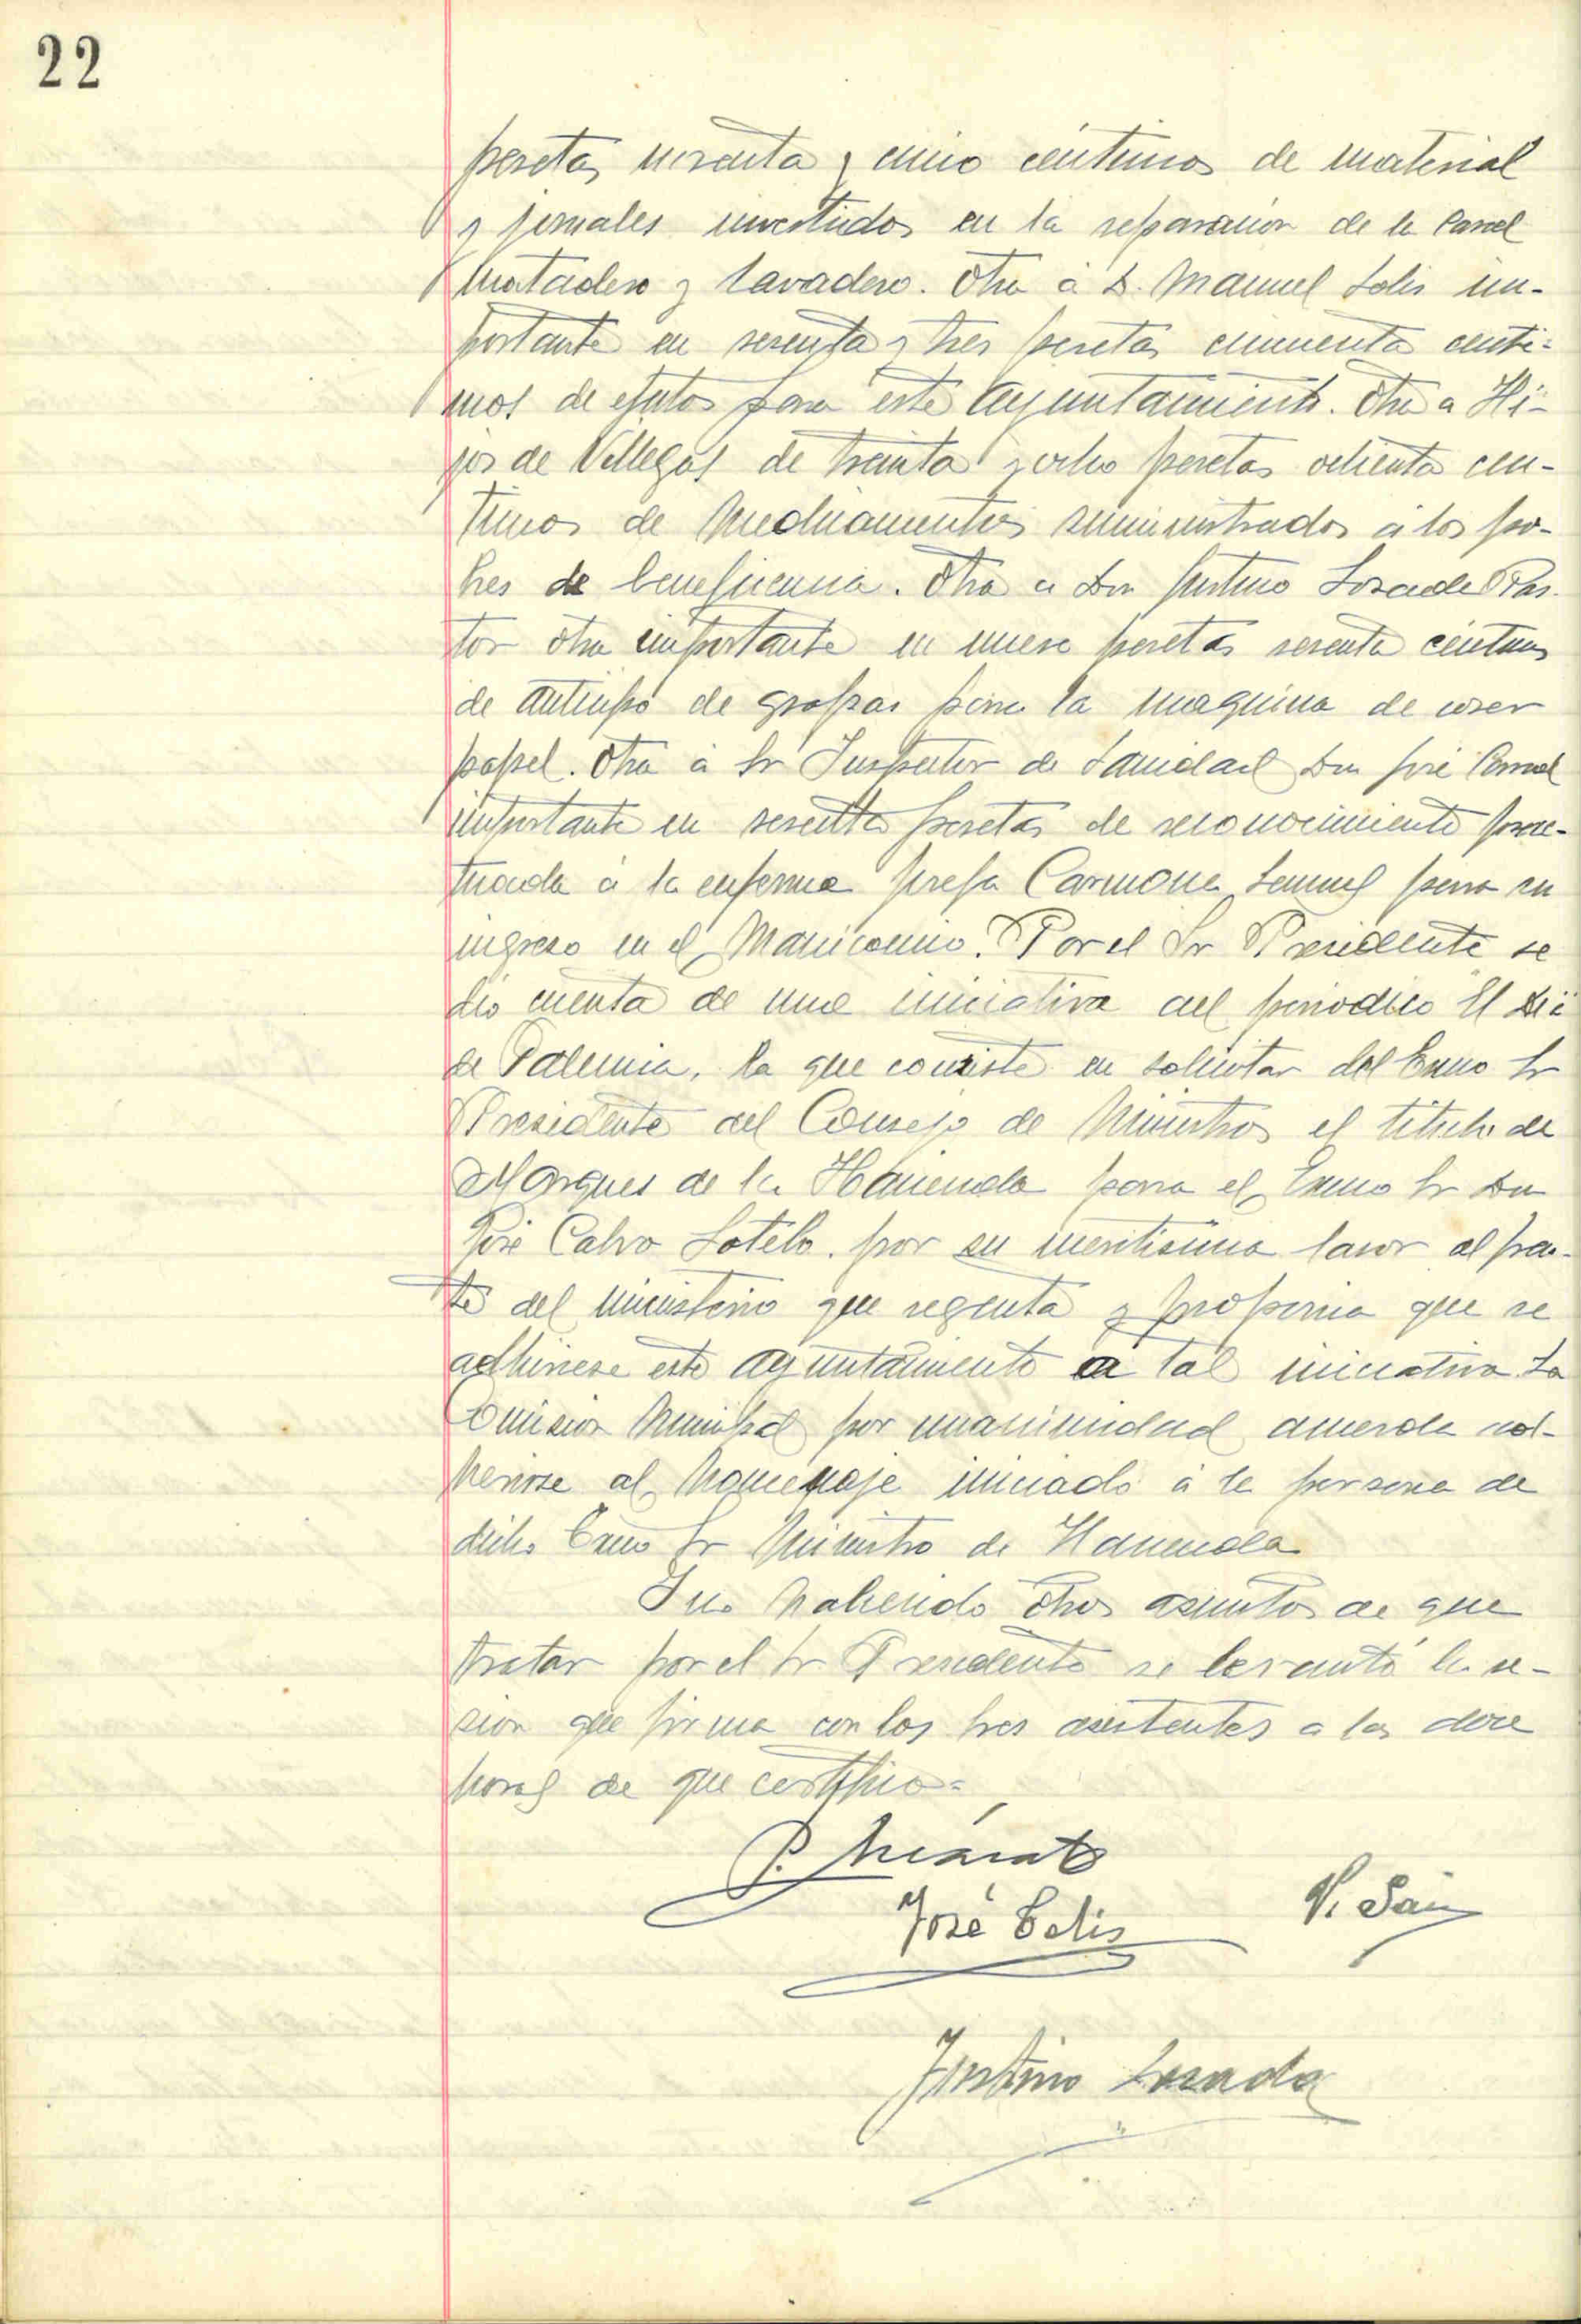 22
pesetas noventa y cinco centimos de material
y jornales invertidos en la reparacion de la Carcel
Matadero y Lavadero. Otra à D. Manuel Solis im-
portante en sesenta y tres pesetas cincuenta centi-
mos de efectos para este Ayuntamiento. Otra a Hi-
jos de Villegas de treinta y ocho pesetas ochenta cen-
timos de Medicamentos suministrados à los po-
bres de beneficencia. Otra a Don Justino Losada Pas-
tor otra importante en nueve pesetas sesenta centimos
de de grapas para la maquina de coser
papel. Otra à Sr Inspector de Sanidad Don José
importante en sesenta pesetas de reconocimiento prac-
ticada a la enferma Carmona para su
ingreso en el Manicomio. Por el Sr Presidente se
dio cuenta de una iniciativa del periodico El Dia
de Palencia, la que consiste en solicitar del Exmo Sr
Presidente del Consejo de Ministros el titulo de
Marques de la Hacienda para el Exmo Sr Don
José Calvo Sotelo por su meritisima labor al fren-
te del ministerio que regenta y proponia que se
adhiriese este ayuntamiento a tal iniciativa. La
Comision Municipal por unanimidad acuerda ad-
herirse al homenaje iniciado à la persona de
dicho Exmo Sr Ministro de Hacienda
Y no habiendo otros asuntos de que
tratar por el Sr Presidente se levantó la se-
sion que firma con los tres asistentes a las doce
horas de que certifico=
José Solis
V. Sain
Justino Losada